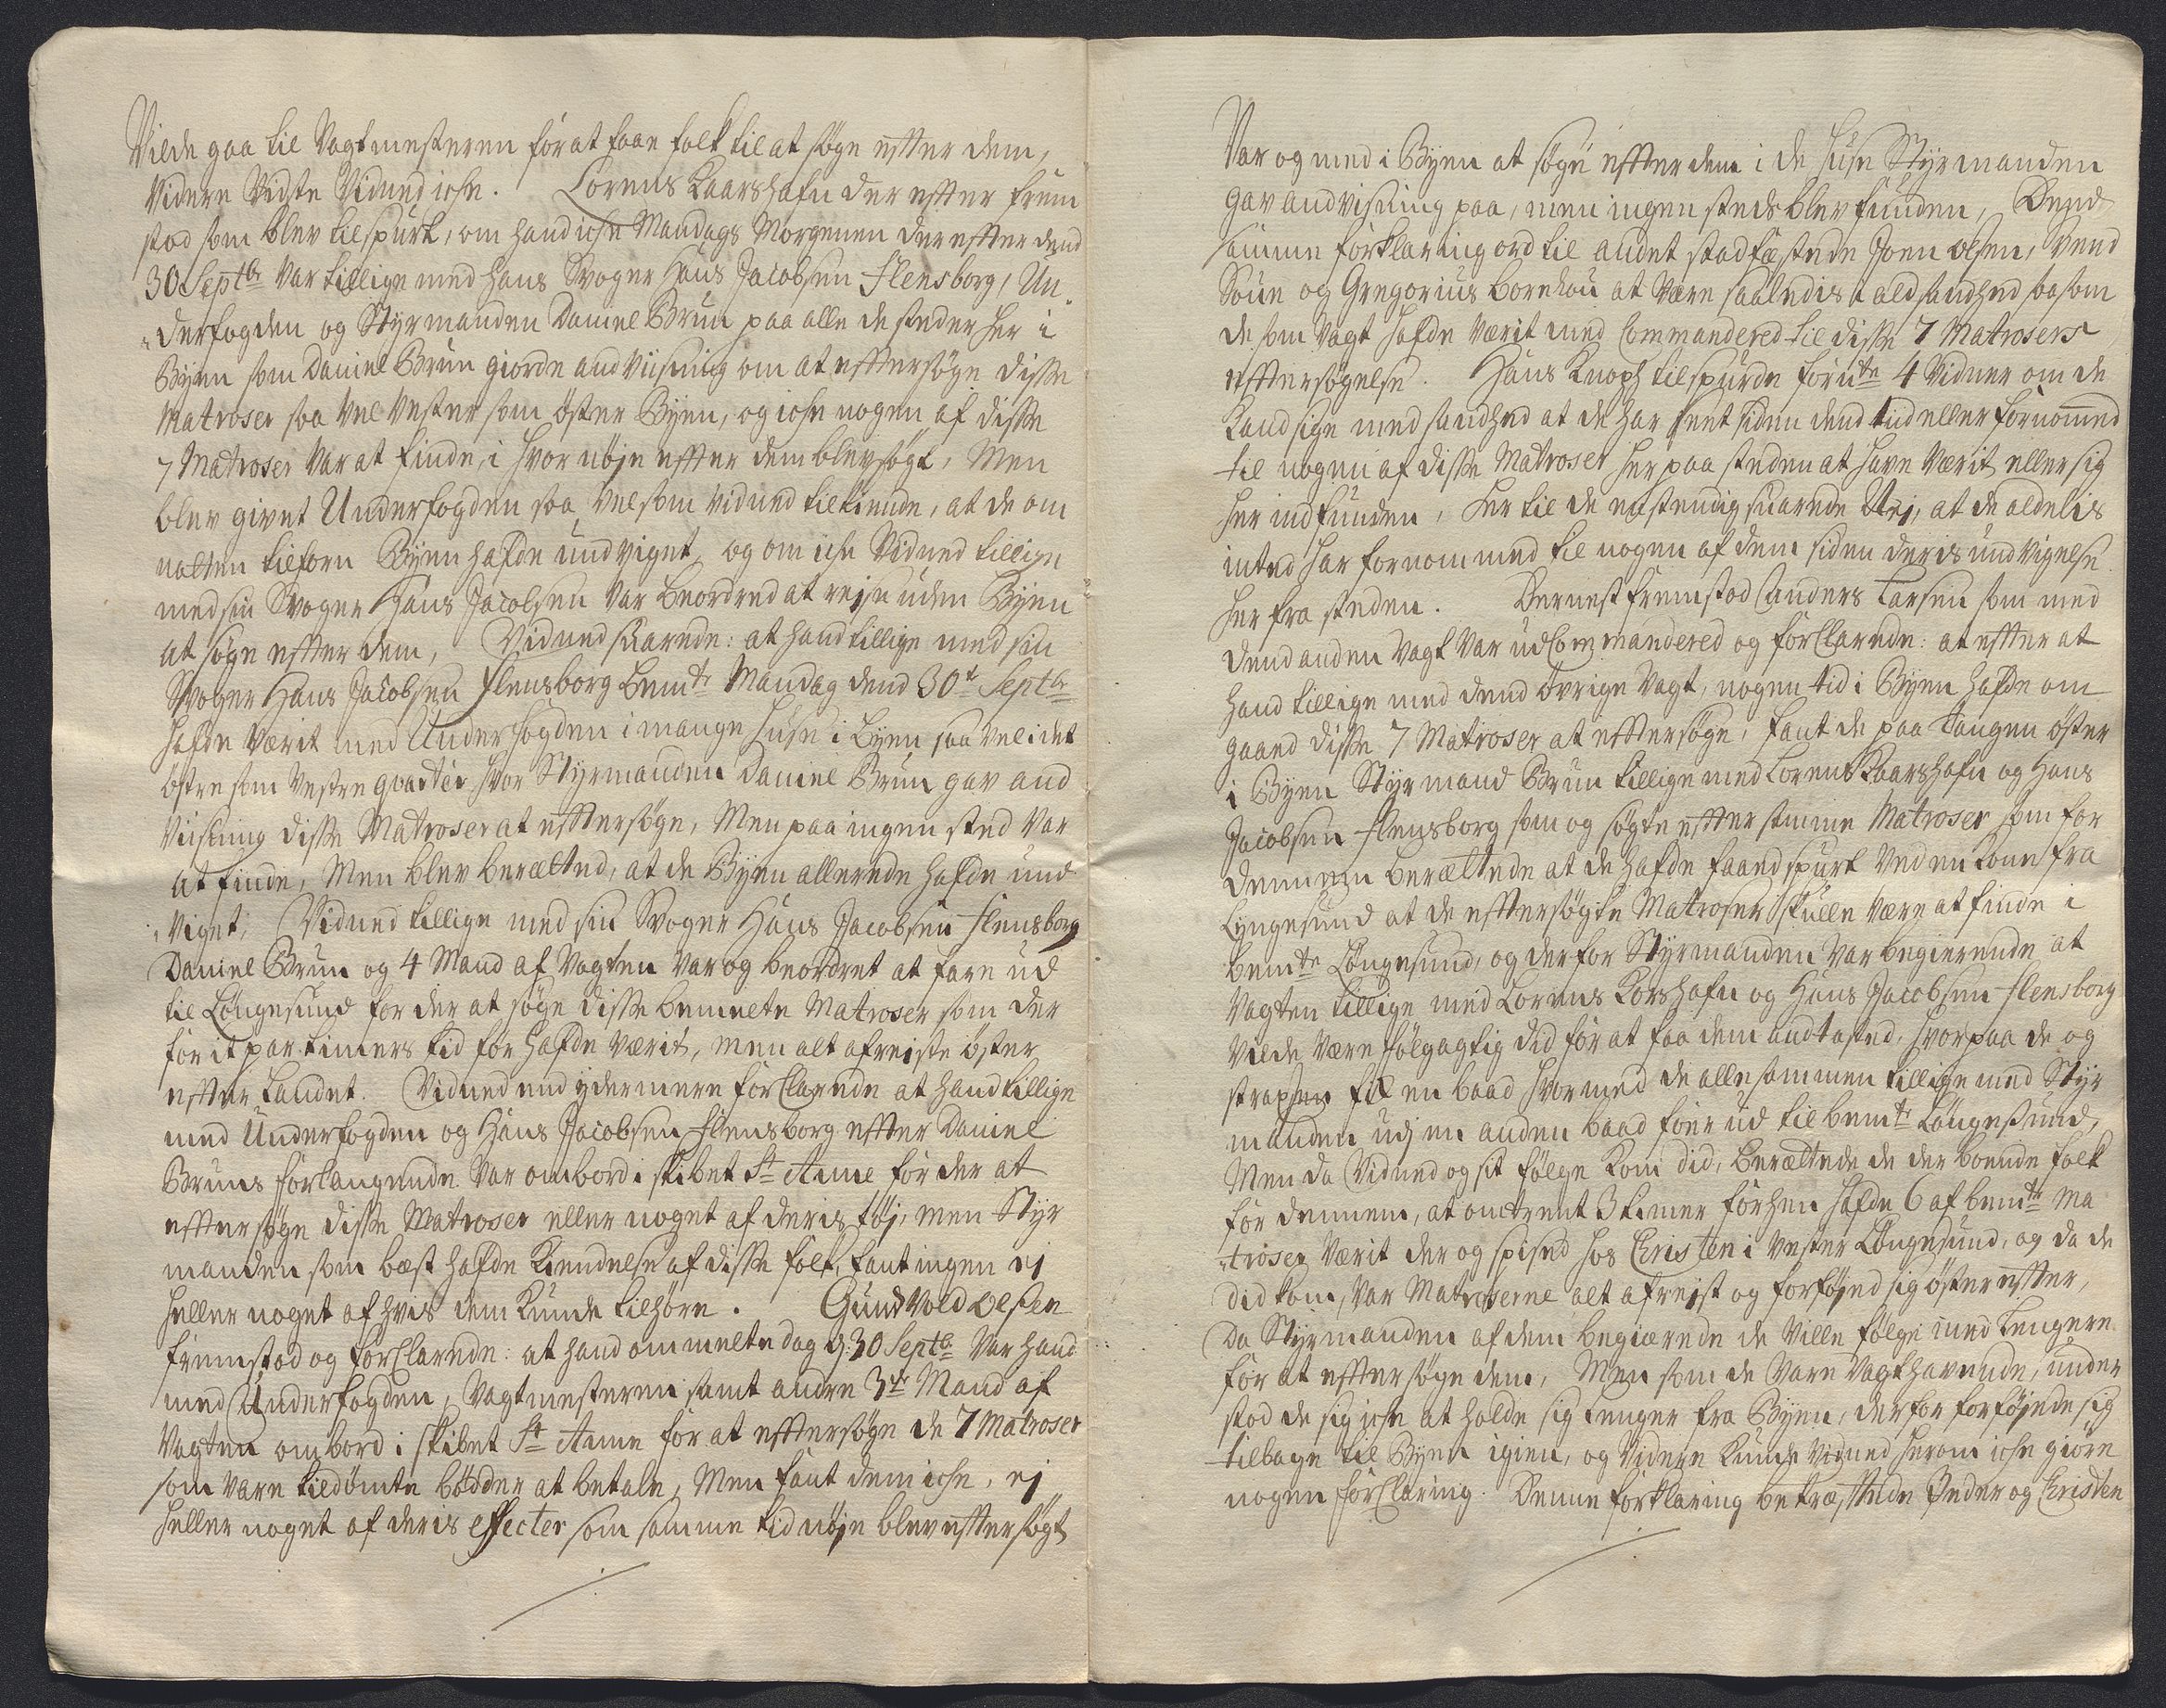 Vilde gaa til Vagtmesteren for at faae folk til at søge effter dem,
Videre Vidste Vidned iche. Lorens Kaarshafn der effter frem
stod som blev tilspurt, om hand iche Mandags Morgenen der effter dend
30 Septbr Var tillige med hans Svoger Hans Jacobsen Flensborg, Un„
„derfogden og Styrmanden Daniel Brun paa alle de steder her i
Byen som Daniel Brun giorde andviisning om at effter søge disse
Matroser saa vel Vester som Øster Byen, og iche nogen af disse
7 Matroser Var at finde, i hvor nøje effter dem blev søgt, Men
blev givet Underfogden saa vel som Vidned tilkiende, at de om
natten tilforn Byen hafde undviget, og om iche Vidned tillige
med sin Svoger Hans Jacobsen Var beordred at rejse uden Byen
at søge effter dem, Vidned suarede: at hand tillige med sin
Svoger Hans Jacobsen Flensborg bemte Mandag dend 30te Septbr
hafde Værit med Underfogden i mange huse i Byen saa vel i det
østre som Vestre qvarter hvor Styrmanden Daniel Brun gav and
Viisning disse Matroser at effter søge, Men paa ingen sted Var
at finde, Men blev berætted, at de Byen allerede hafde und
„viget, Vidned tillige med sin Svoger Hans Jacobsen Flensborg
Daniel Brun og 4 Mand af Vagten Var og beordret at fare ud
til Langesund for der at søge disse bemelte Matroser som der
for it par timers tid før hafde Værit, men alt afrejste øster
effter Landet. Vidned end ydermere forclarede at hand tillige
med Underfogden og Hans Jacobsen Flensborg effter Daniel
Bruns forlangende Var ombord i skibet St Anne for der at
effter søge disse Matroser eller noget af deris tøj, men Styr
manden som bæst hafde Kiendelse af disse folk, fant ingen ej
heller noget af hvis dem Kunde tilhøre. Gundvold Olsen
fremstod og forclarede: at hand ommelte dag d. 30 Septbr Var hand
med Underfogden, Vagtmesteren samt andre 3de Mand af
Vagten ombord i skibet St Anne for at effter søge de 7 Matroser
som Vare tildømte bødder at betale, Men fant dem iche, ej
heller noget af deris effecter som samme tid nøje blev effter søgt
Var og med i Byen at søge effter dem i de huse Styrmanden
gav andvisning paa, men ingen steds blev funden, Dend
samme forklaring ord til andet stadfæstede Joen Olsen, Svend
Soue og Gregorius Bornhou at Være saaledis i ald sandhed saa som
de som Vagt hafde værit med Commandered til disse 7 Matrosers
effter søgelse. Hans Knoph tilspurde forn:te 4 Vidner om de
Kand sige med sandhed at de har seet siden dend tid eller fornommed
til nogen af disse Matroser her paa steden at have Værit eller sig
her indfunden, Her til de enstendig suarede Nej, at de aldelis
inted har fornommed til nogen af dem siden deris undvigelse
her fra steden. Dernest fremstod Anders Larsen som med
dend anden Vagt Var ud Commandered og forclarede: at effter at
hand tillige med dend øvrige Vagt, nogen tid i Byen hafde om
gaaed disse 7 Matroser at effter søge, fant de paa Tangen øster
i Byen Styrmand Brun tillige med Lorens Kaarshafn og Hans
Jacobsen Flensborg som og søgte effter samme Matroser som for
dennem berættede at de hafde faaed spurt Ved en Kone fra
Langesund at de effter søgte Matroser skulle Være at finde i
bemte Langesund, og derfor Styrmanden Var begierende at
Vagten tillige med Lorens Korshafn og Hans Jacobsen Flensborg
Vilde Være følgagtig did for at faa dem andtasted, hvorpaa de og
strapsen fik en baad hvor med de alle sammen tillige med Styr
manden udj en anden baad foer ud til bemte Langesund,
Men da Vidned og sit følge Kom did, berættede de der boende folk
for dennem, at omtrent 3 timer forhen hafde 6 af bemte Ma
„troser Værit der og spised hos Christen i Vester Langesund, og da de
did kom, Var Matroserne alt afrejst og forføjed sig øster effter,
Da Styrmanden af dem begiærede de Ville følge med Lengere
for at effter søge dem, Men som de Vare Vagthavende, under
stod de sig iche at holde sig lenger fra Byen, derfor forføjede sig
tilbage til Byen igien, og Videre Kunde Vidned herom iche giøre
nogen forclaring. Denne forklaring bekræfftede Peder og Christen